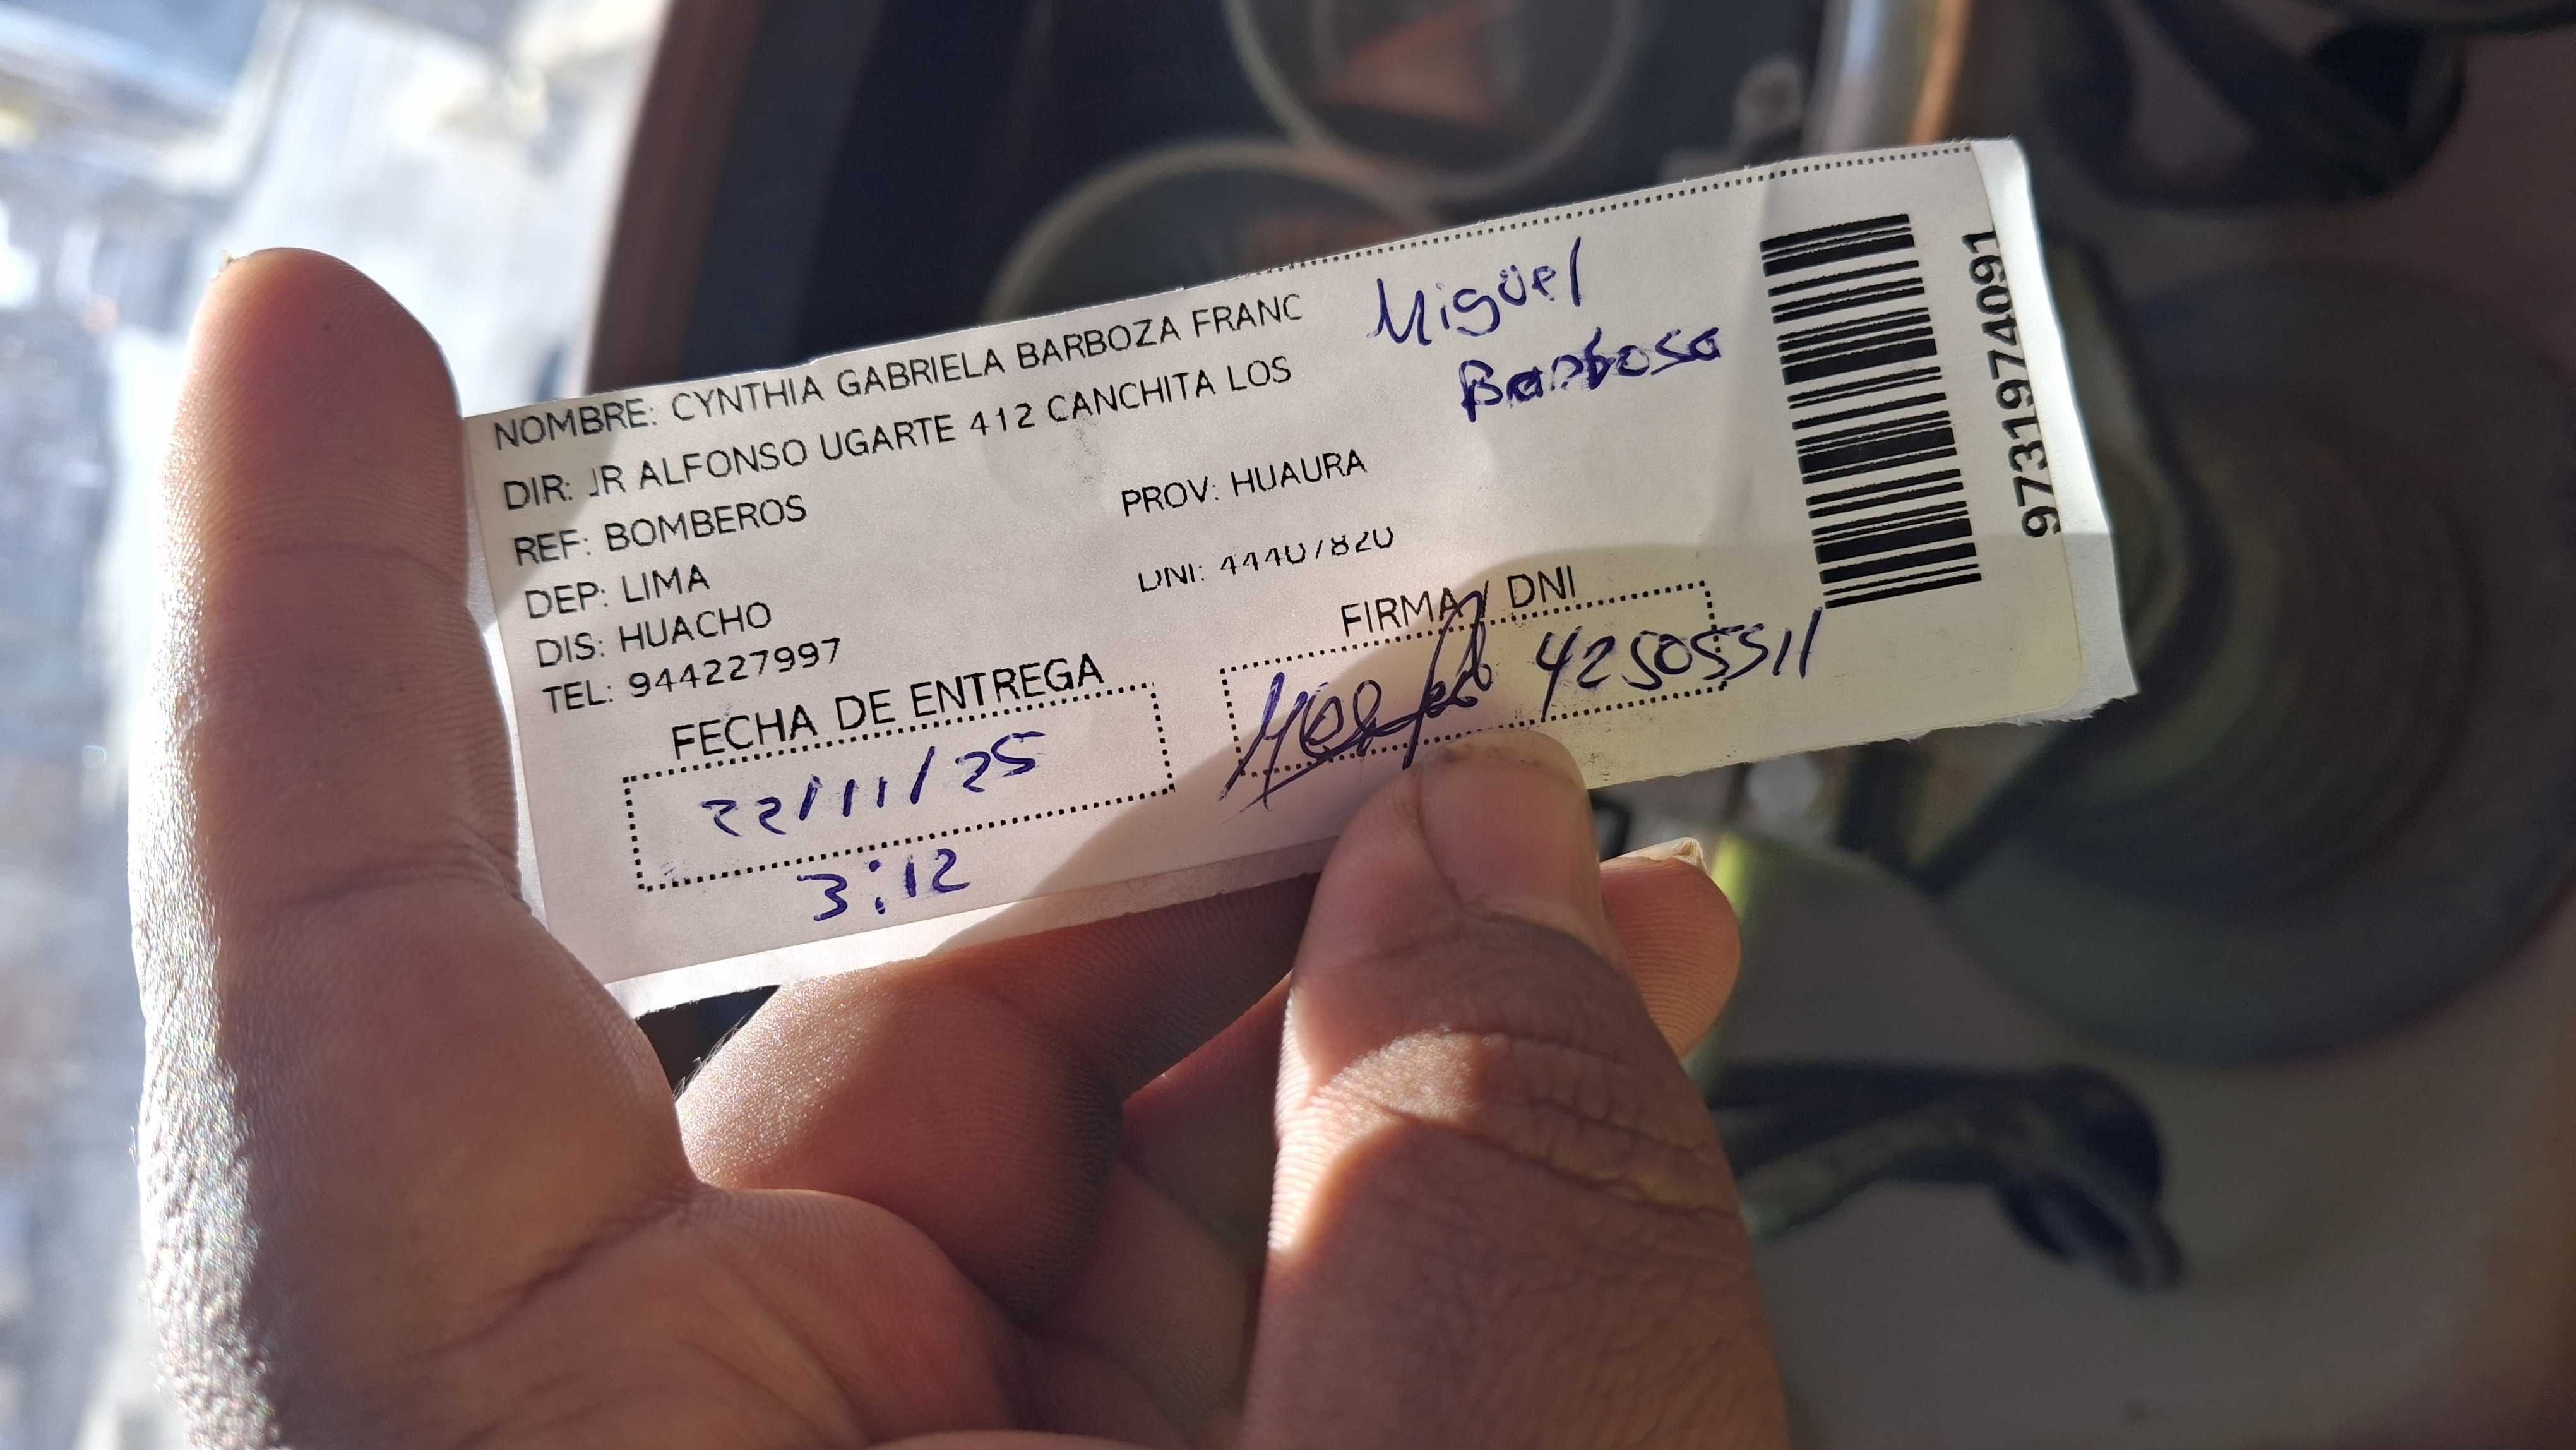 NOMBRE: CYNTHIA GABRIELA BARBOZA FRANC
DIR: JR ALFONSO UGARTE 412 CANCHITA LOS
REF: BOMBEROS
DEP: LIMA
PROV: HUAURA
DIS: HUACHO
DNI: 44407820
TEL: 944227997
Miguel
Barbosa
FECHA DE ENTREGA
22/11/25
3:12
FIRMA / DNI
42505511
9731974091